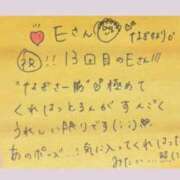 Eさん なぎさより
13回目のEさん!!!
"なぎさ一筋"極めて
くれはっとるんが すんごく
うれしい限りです(;;)♥
あのポーズ…! 気に入ってくれは
みたい…